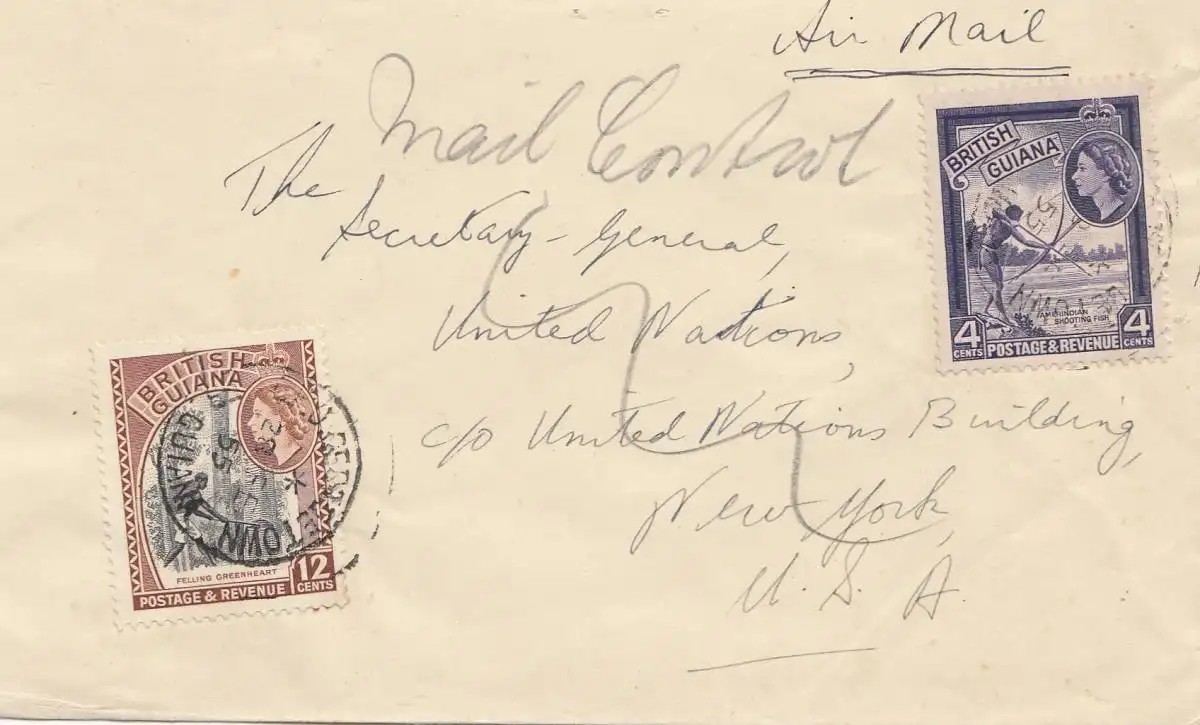 Air Mail
Mail Control
The
Secretary-General,
United Nations,
c/o United Nations Building,
New York,
U.S.A.
BRITISH
GUIANA
AMERINDIAN
SHOOTING FISH
4
CENTS
POSTAGE & REVENUE
4
CENTS
BRITISH
GUIANA
FELLING GREENHEART
12
CENTS
POSTAGE & REVENUE
55
GUIANA